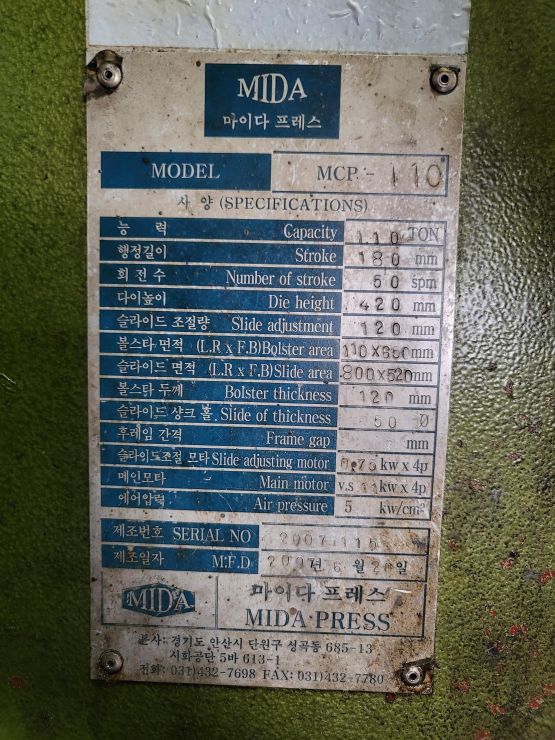 MIDA
마이다 프레스
MODEL MCP - 110
사 양 (SPECIFICATIONS)
능 력 Capacity 110 TON
행정길이 Stroke 180 mm
회 전 수 Number of stroke 50 spm
다이높이 Die height 420 mm
슬라이드 조절량 Slide adjustment 120 mm
볼스타 면적 (L.R x F.B)Bolster area 110X650mm
슬라이드 면적 (L.R x F.B)Slide area 800x520mm
볼스타 두께 Bolster thickness 120 mm
슬라이드 샹크 홀 Slide of thickness 50 Ø
후레임 간격 Frame gap mm
슬라이드조절 모타 Slide adjusting motor 0.75 kw x 4p
메인모타 Main motor v.s 11 kw x 4p
에어압력 Air pressure 5 kw/cm²
제조번호 SERIAL NO
제조일자 M.F.D 2007년 6월 20일
MIDA 마이다 프레스
MIDA PRESS
본사: 경기도 안산시 단원구 성곡동 685-13
시화공단 5바 613-1
전화: 031)432-7698 FAX: 031)432-7780